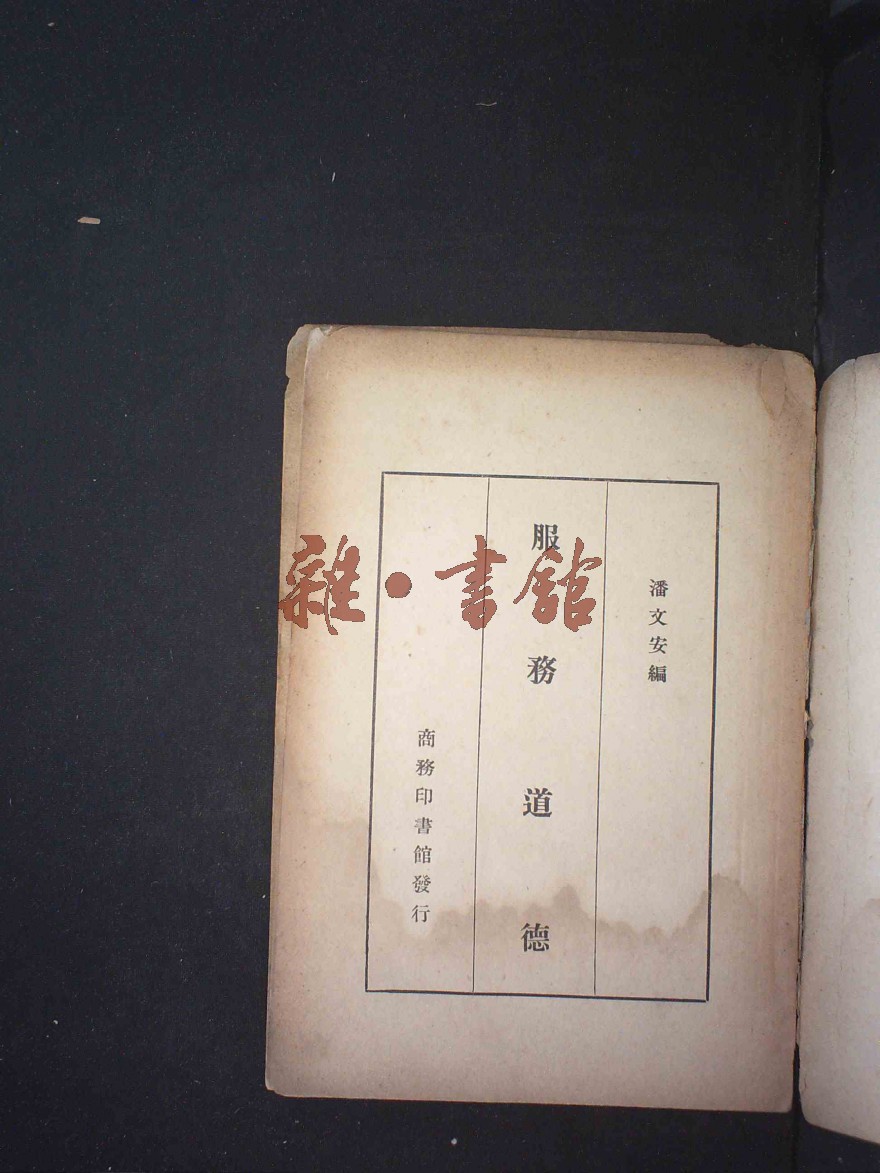 潘文安編
服務道德
商務印書館發行
雜·書館